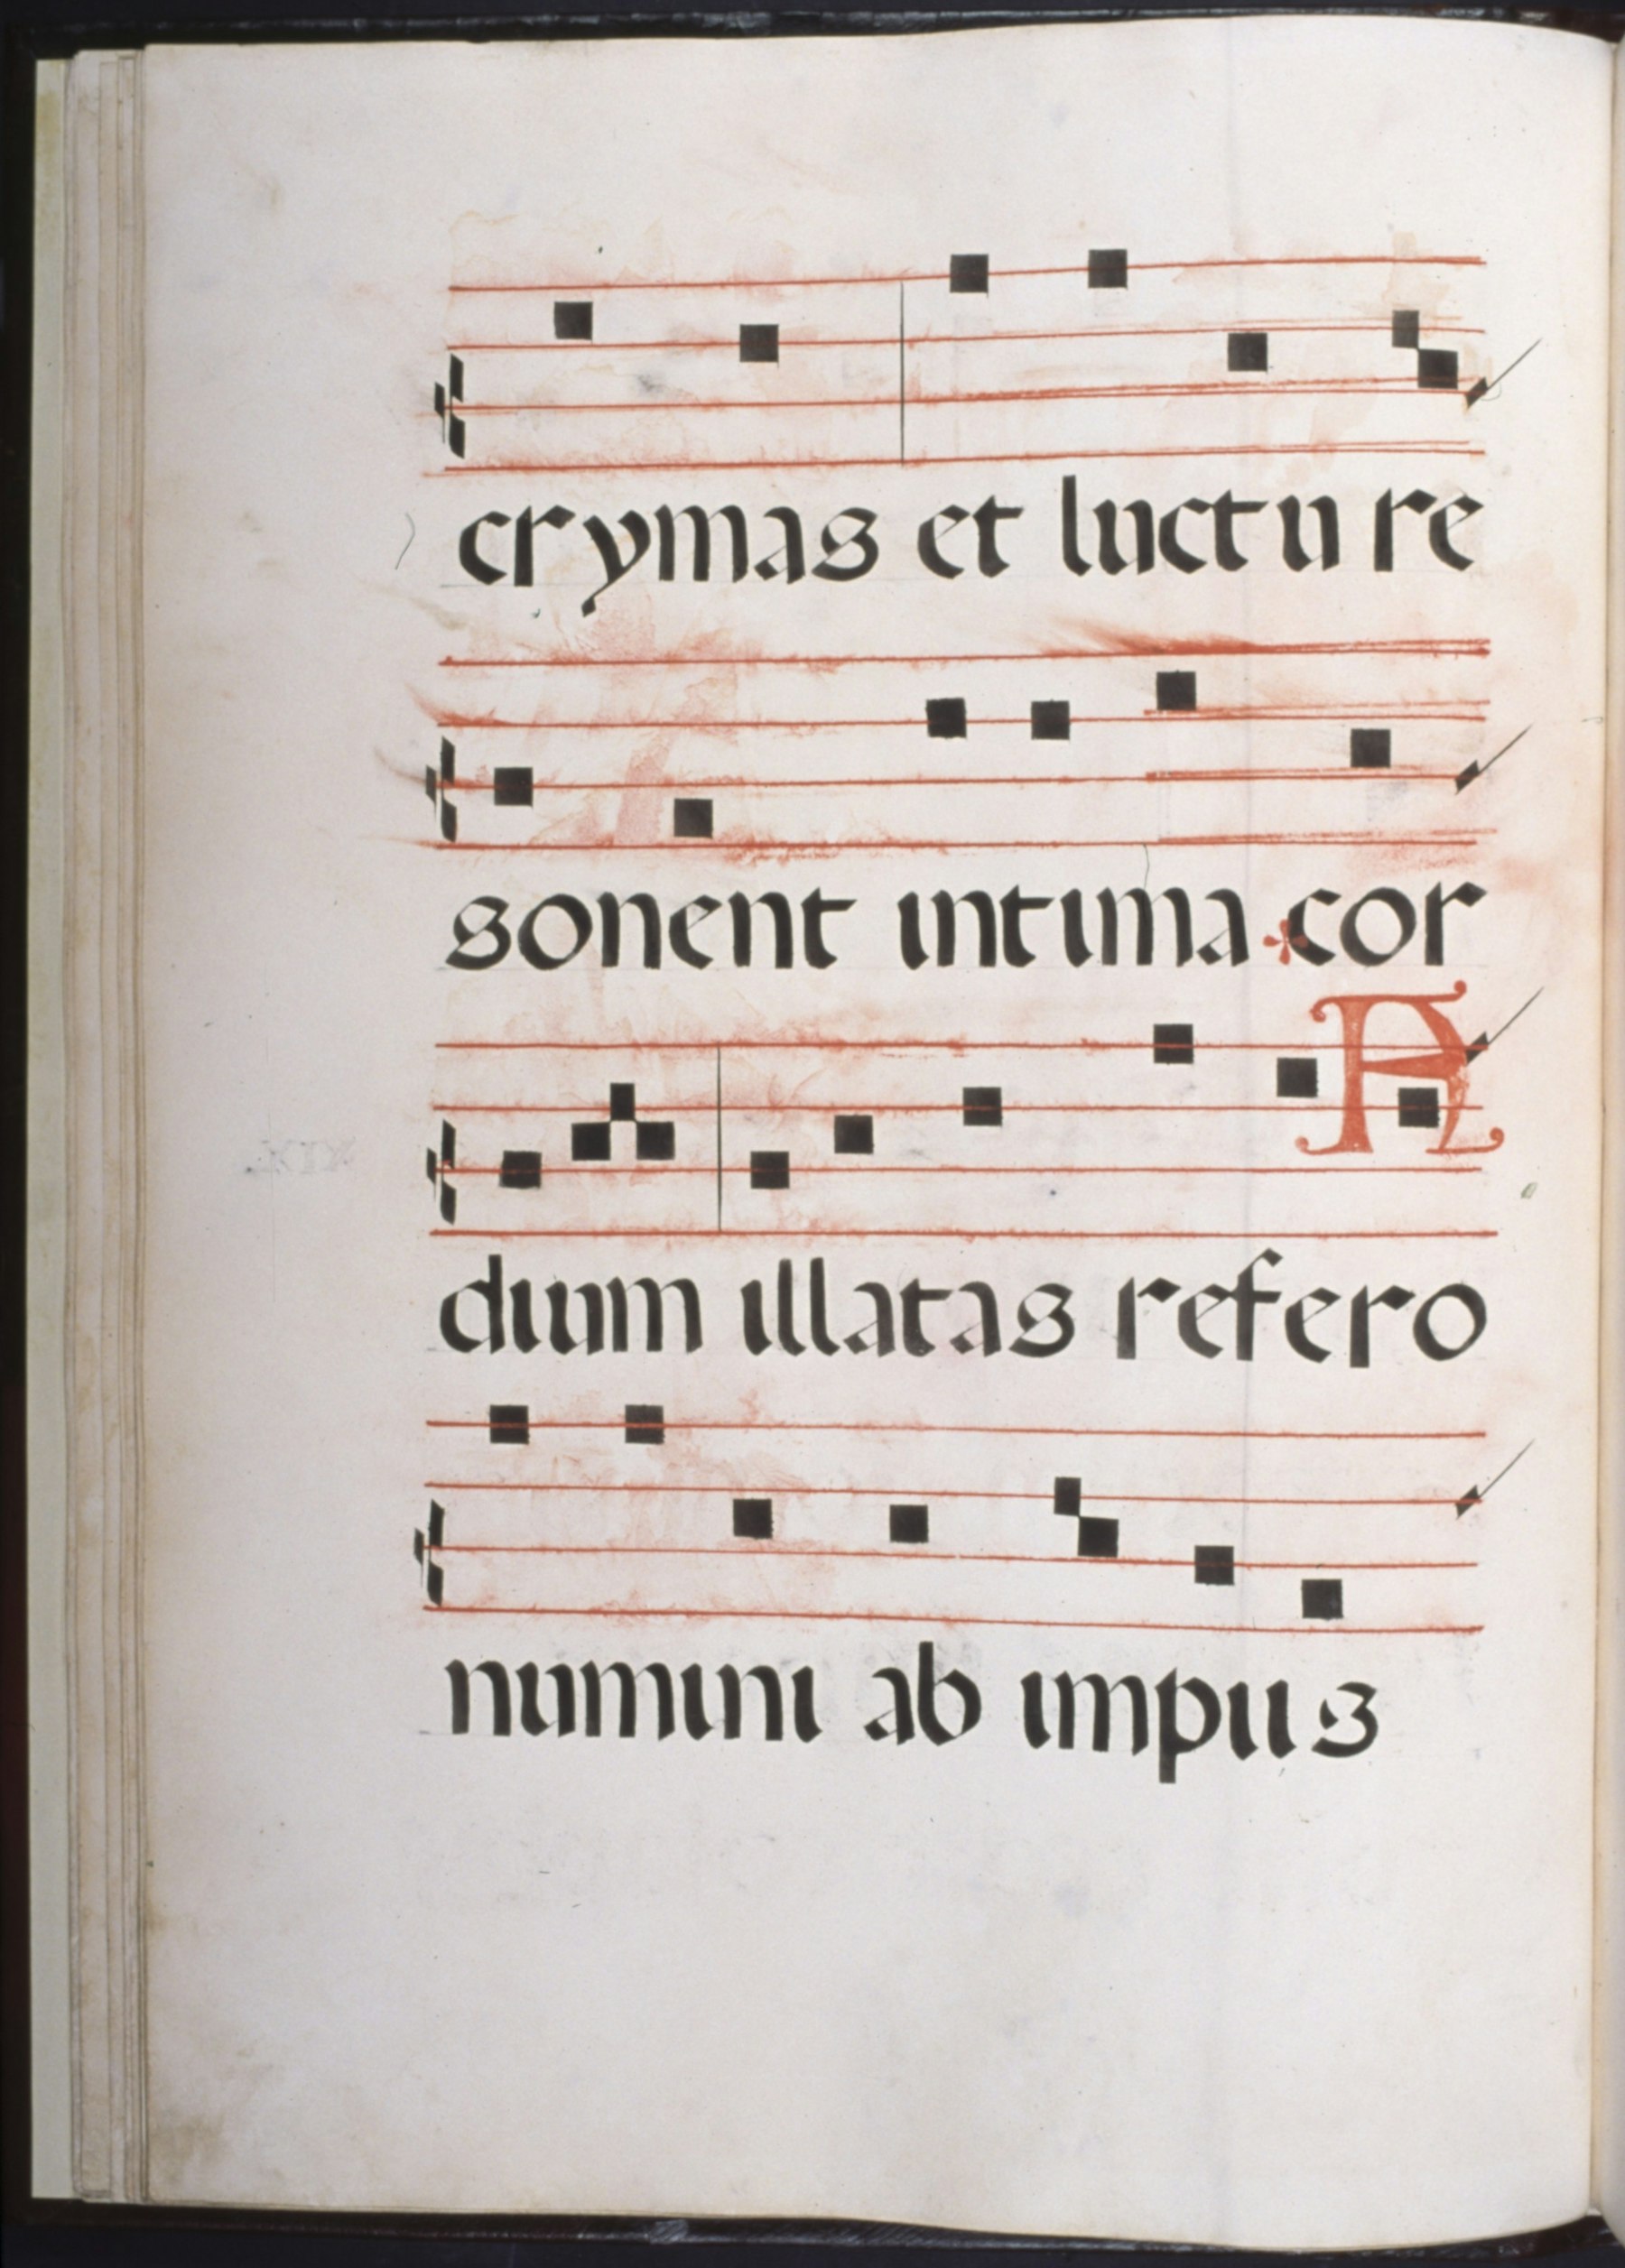 crymas et luctu re
sonent intima cor
A
dium illatas refero
numini ab impiis